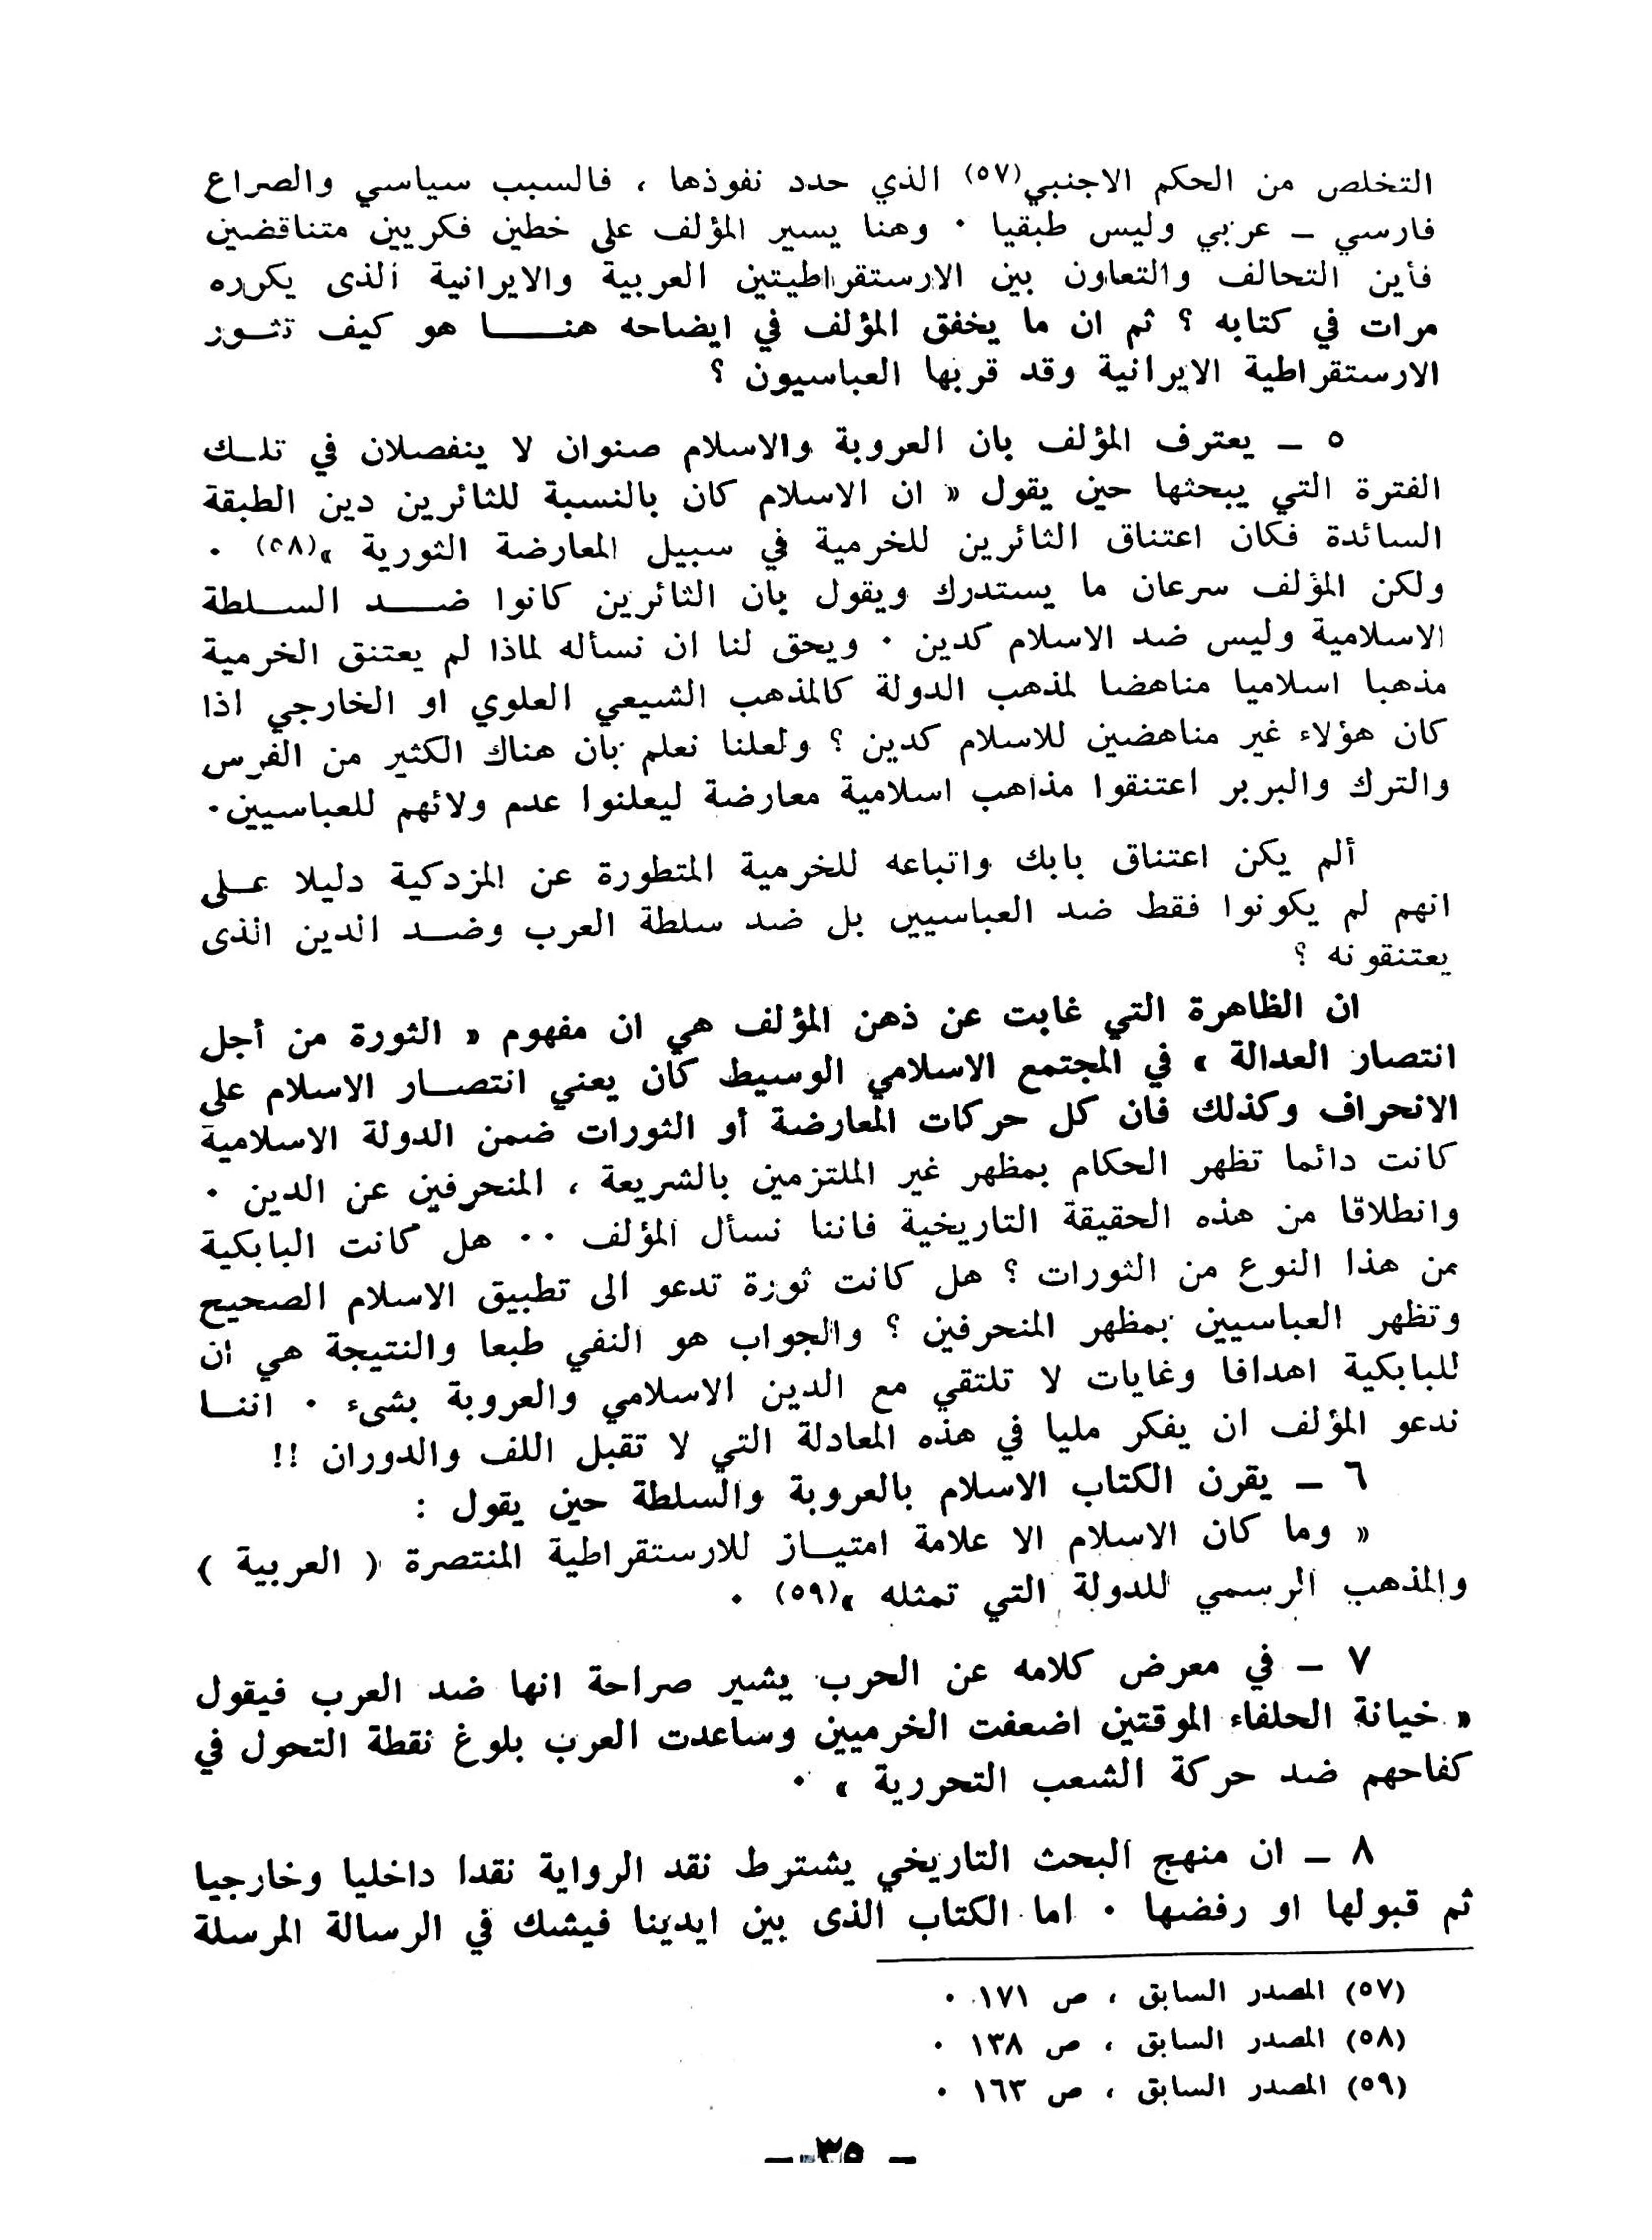 التخلص من الحكم الاجنبي(٥٧) الذي حدد نفوذها ، فالسبب سياسي والصراع
فارسي ـ عربي وليس طبقيا ٠ وهنا يسير المؤلف على خطين فكريين متناقضين
فأين التحالف والتعاون بين الارستقراطيتين العربية والايرانية الذى يكرره
مرات في كتابه ؟ ثم ان ما يخفق المؤلف في ايضاحه هنـــا هو كيف تثـور
الارستقراطية الايرانية وقد قربها العباسيون ؟
٥ ـ يعترف المؤلف بان العروبة والاسلام صنوان لا ينفصلان في تلـك
الفترة التي يبحثها حين يقول « ان الاسلام كان بالنسبة للثائرين دين الطبقة
السائدة فكان اعتناق الثائرين للخرمية في سبيل المعارضة الثورية »(٥٨) ٠
ولكن المؤلف سرعان ما يستدرك ويقول بان الثائرين كانوا ضـــد السـلطة
الاسلامية وليس ضد الاسلام كدين ٠ ويحق لنا ان نسأله لماذا لم يعتنق الخرمية
مذهبا اسلاميا مناهضا لمذهب الدولة كالمذهب الشيعي العلوي او الخارجي اذا
كان هؤلاء غير مناهضين للاسلام كدين ؟ ولعلنا نعلم بان هناك الكثير من الفرس
والترك والبربر اعتنقوا مذاهب اسلامية معارضة ليعلنوا عدم ولائهم للعباسيين٠
ألم يكن اعتناق بابك واتباعه للخرمية المتطورة عن المزدكية دليلا عـلى
انهم لم يكونوا فقط ضد العباسيين بل ضد سلطة العرب وضـد الدين الذى
يعتنقونه ؟
ان الظاهرة التي غابت عن ذهن المؤلف هي ان مفهوم « الثورة من أجل
انتصار العدالة » في المجتمع الاسلامي الوسيط كان يعني انتصـار الاسلام على
الانحراف وكذلك فان كل حركات المعارضة أو الثورات ضمن الدولة الاسلامية
كانت دائما تظهر الحكام بمظهر غير الملتزمين بالشريعة ، المنحرفين عن الدين ٠
وانطلاقا من هذه الحقيقة التاريخية فاننا نسأل المؤلف ٠٠ هل كانت البابكية
من هذا النوع من الثورات ؟ هل كانت ثورة تدعو الى تطبيق الاسلام الصحيح
وتظهر العباسيين بمظهر المنحرفين ؟ والجواب هو النفي طبعا والنتيجة هي ان
للبابكية اهدافا وغايات لا تلتقي مع الدين الاسلامي والعروبة بشىء ٠ اننـا
ندعو المؤلف ان يفكر مليا في هذه المعادلة التي لا تقبل اللف والدوران !!
٦ ـ يقرن الكتاب الاسلام بالعروبة والسلطة حين يقول :
« وما كان الاسلام الا علامة امتيـاز للارستقراطية المنتصرة ( العربية )
والمذهب الرسمي للدولة التي تمثله »(٥٩) ٠
٧ ـ في معرض كلامه عن الحرب يشير صراحة انها ضد العرب فيقول
« خيانة الحلفاء الموقتين اضعفت الخرميين وساعدت العرب بلوغ نقطة التحول في
كفاحهم ضد حركة الشعب التحررية » ٠
٨ ـ ان منهج البحث التاريخي يشترط نقد الرواية نقدا داخليا وخارجيا
ثم قبولها او رفضها ٠ اما الكتاب الذى بين ايدينا فيشك في الرسالة المرسلة
(٥٧) المصدر السابق ، ص ١٧١ ٠
(٥٨) المصدر السابق ، ص ١٣٨ ٠
(٥٩) المصدر السابق ، ص ١٦٣ ٠
ـ ٣٥ ـ